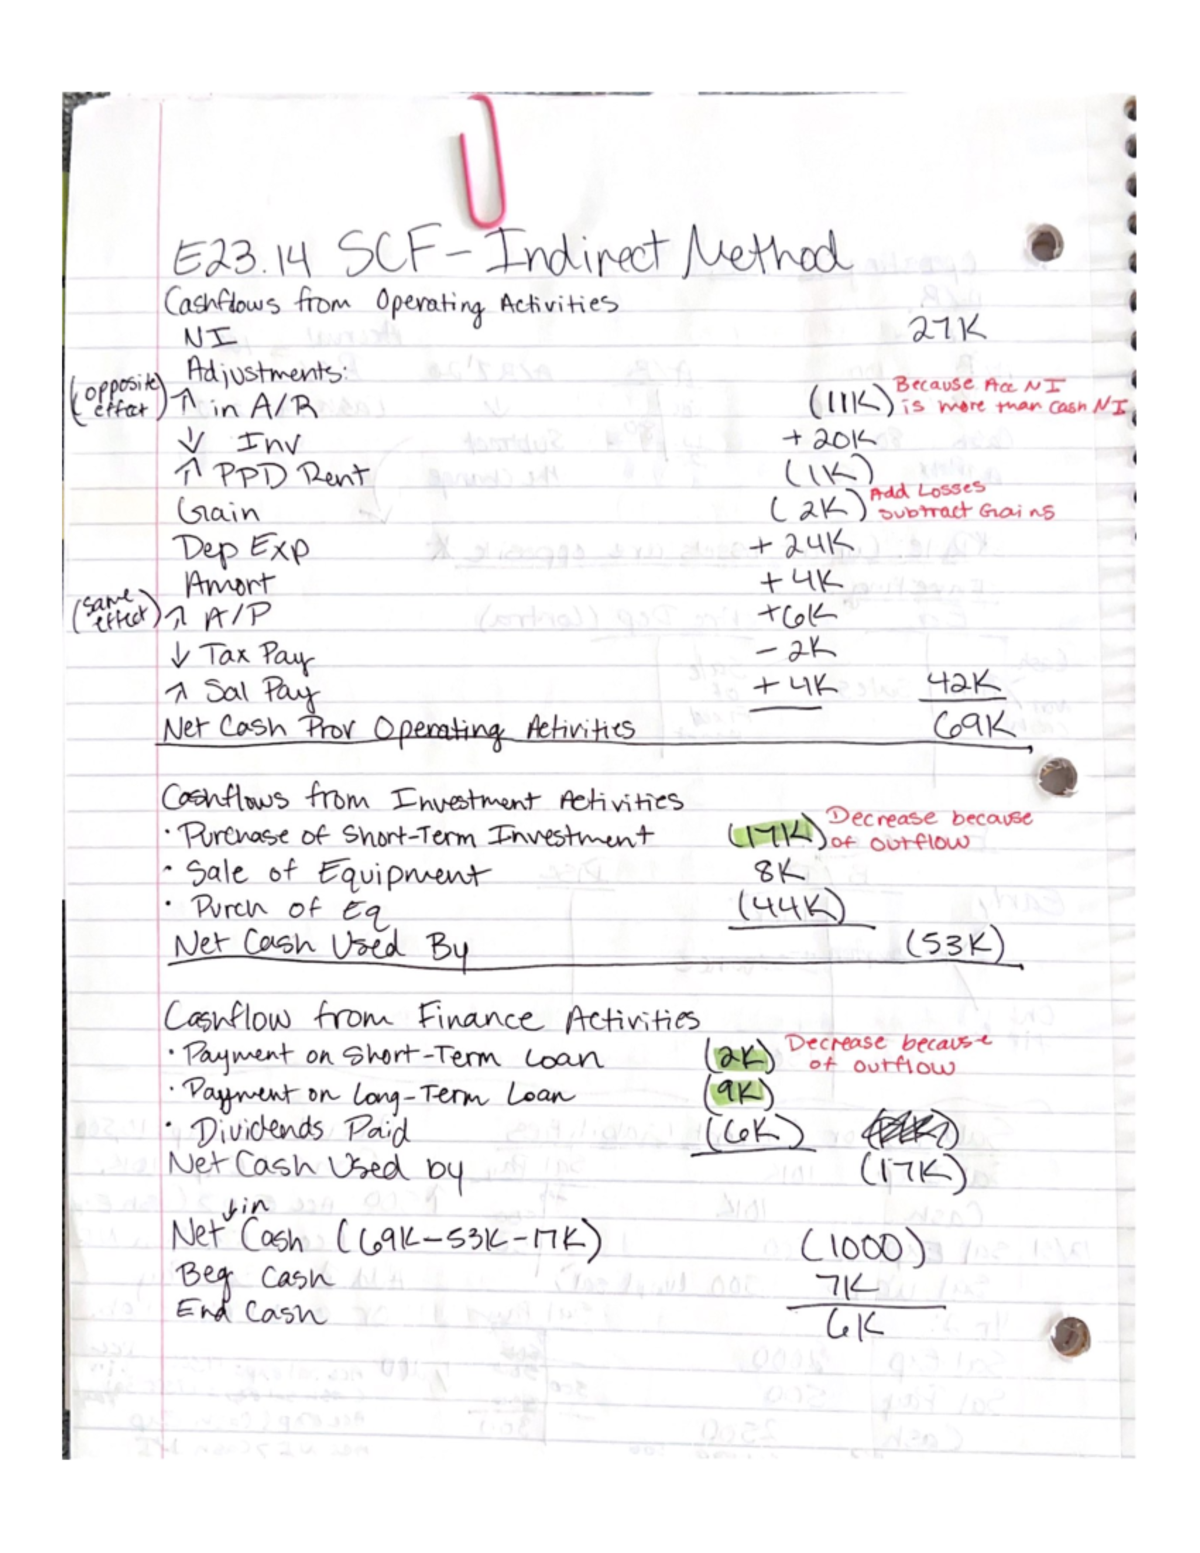 E23.14 SCF - Indirect Method
Cashflows from Operating Activities
NI 27K
Adjustments:
(opposite effect) ↑ in A/R (11K) Because Acc NI is more than Cash NI
↓ Inv + 20K
↑ PPD Rent (1K)
Gain (2K) Add Losses Subtract Gains
Dep Exp + 24K
Amort + 4K
(same effect) ↑ A/P +6K
↓ Tax Pay - 2K
↑ Sal Pay + 4K 42K
Net Cash Prov Operating Activities 69K
Cashflows from Investment Activities
· Purchase of Short-Term Investment (17K) Decrease because of outflow
· Sale of Equipment 8K
· Purch of Eq (44K)
Net Cash Used By (53K)
Cashflow from Finance Activities
· Payment on Short-Term Loan (2K) Decrease because of outflow
· Payment on Long-Term Loan (9K)
· Dividends Paid (6K)
Net Cash Used by (17K)
Net ↓ in Cash (69K-53K-17K) (1000)
Beg Cash 7K
End Cash 6K